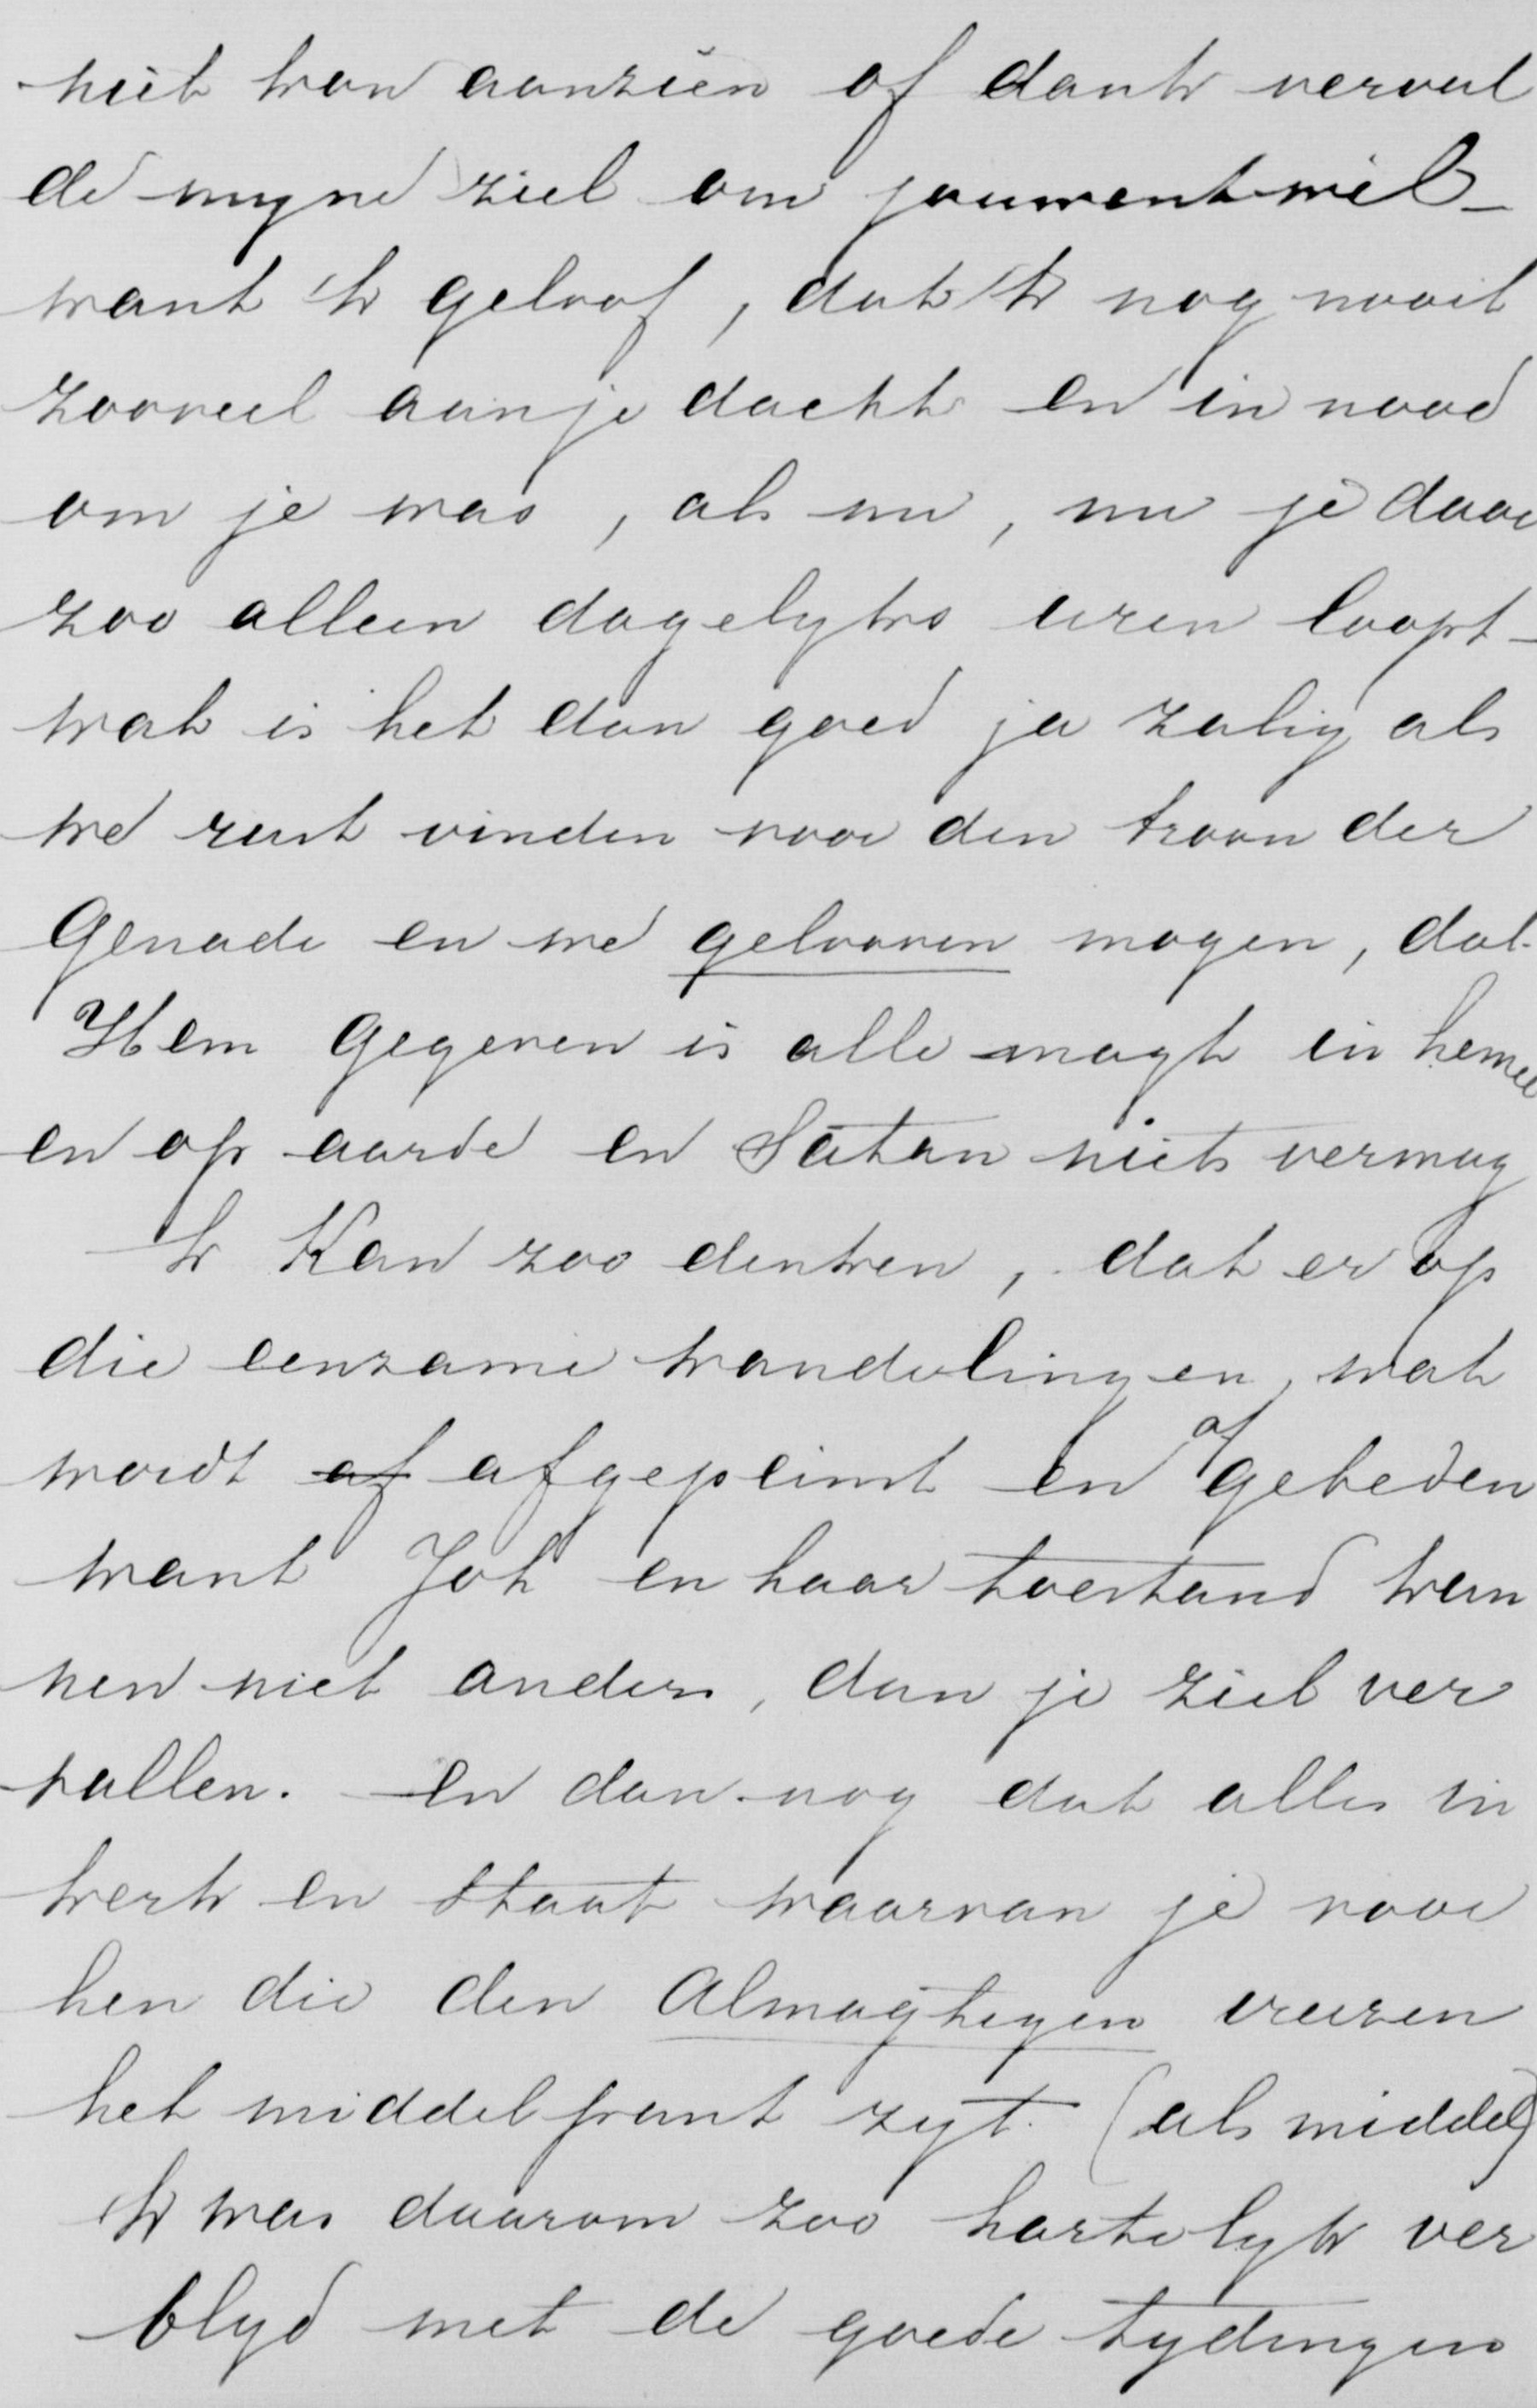 niet kon aanzien of dank vervul
de myne ziel om jouwentwil –
want 'k geloof, dat 'k nog nooit
zooveel aan je dacht en in nood
om je was, als nu, nu je daar
zoo alleen dagelyks uren loopt –
wat is het dan goed ja zalig als
we rust vinden voor den troon der
Genade en we gelooven mogen, dat
Hem gegeven is alle magt in hemel
en op aarde en Satan niets vermag
'k Kan zoo denken, dat er op
die eenzame wandelingen, wat
wordt af afgepeinst en af gebeden
want Joh en haar toestand kun
nen niet anders, dan je ziel ver
vullen. En dan nog dat alles in
kerk en Staat waarvan je voor
hen die den Almagtigen vreezen
het middelpunt zyt. (als middel)
'k was daarom zoo hartelyk ver
blyd met de goede tydingen